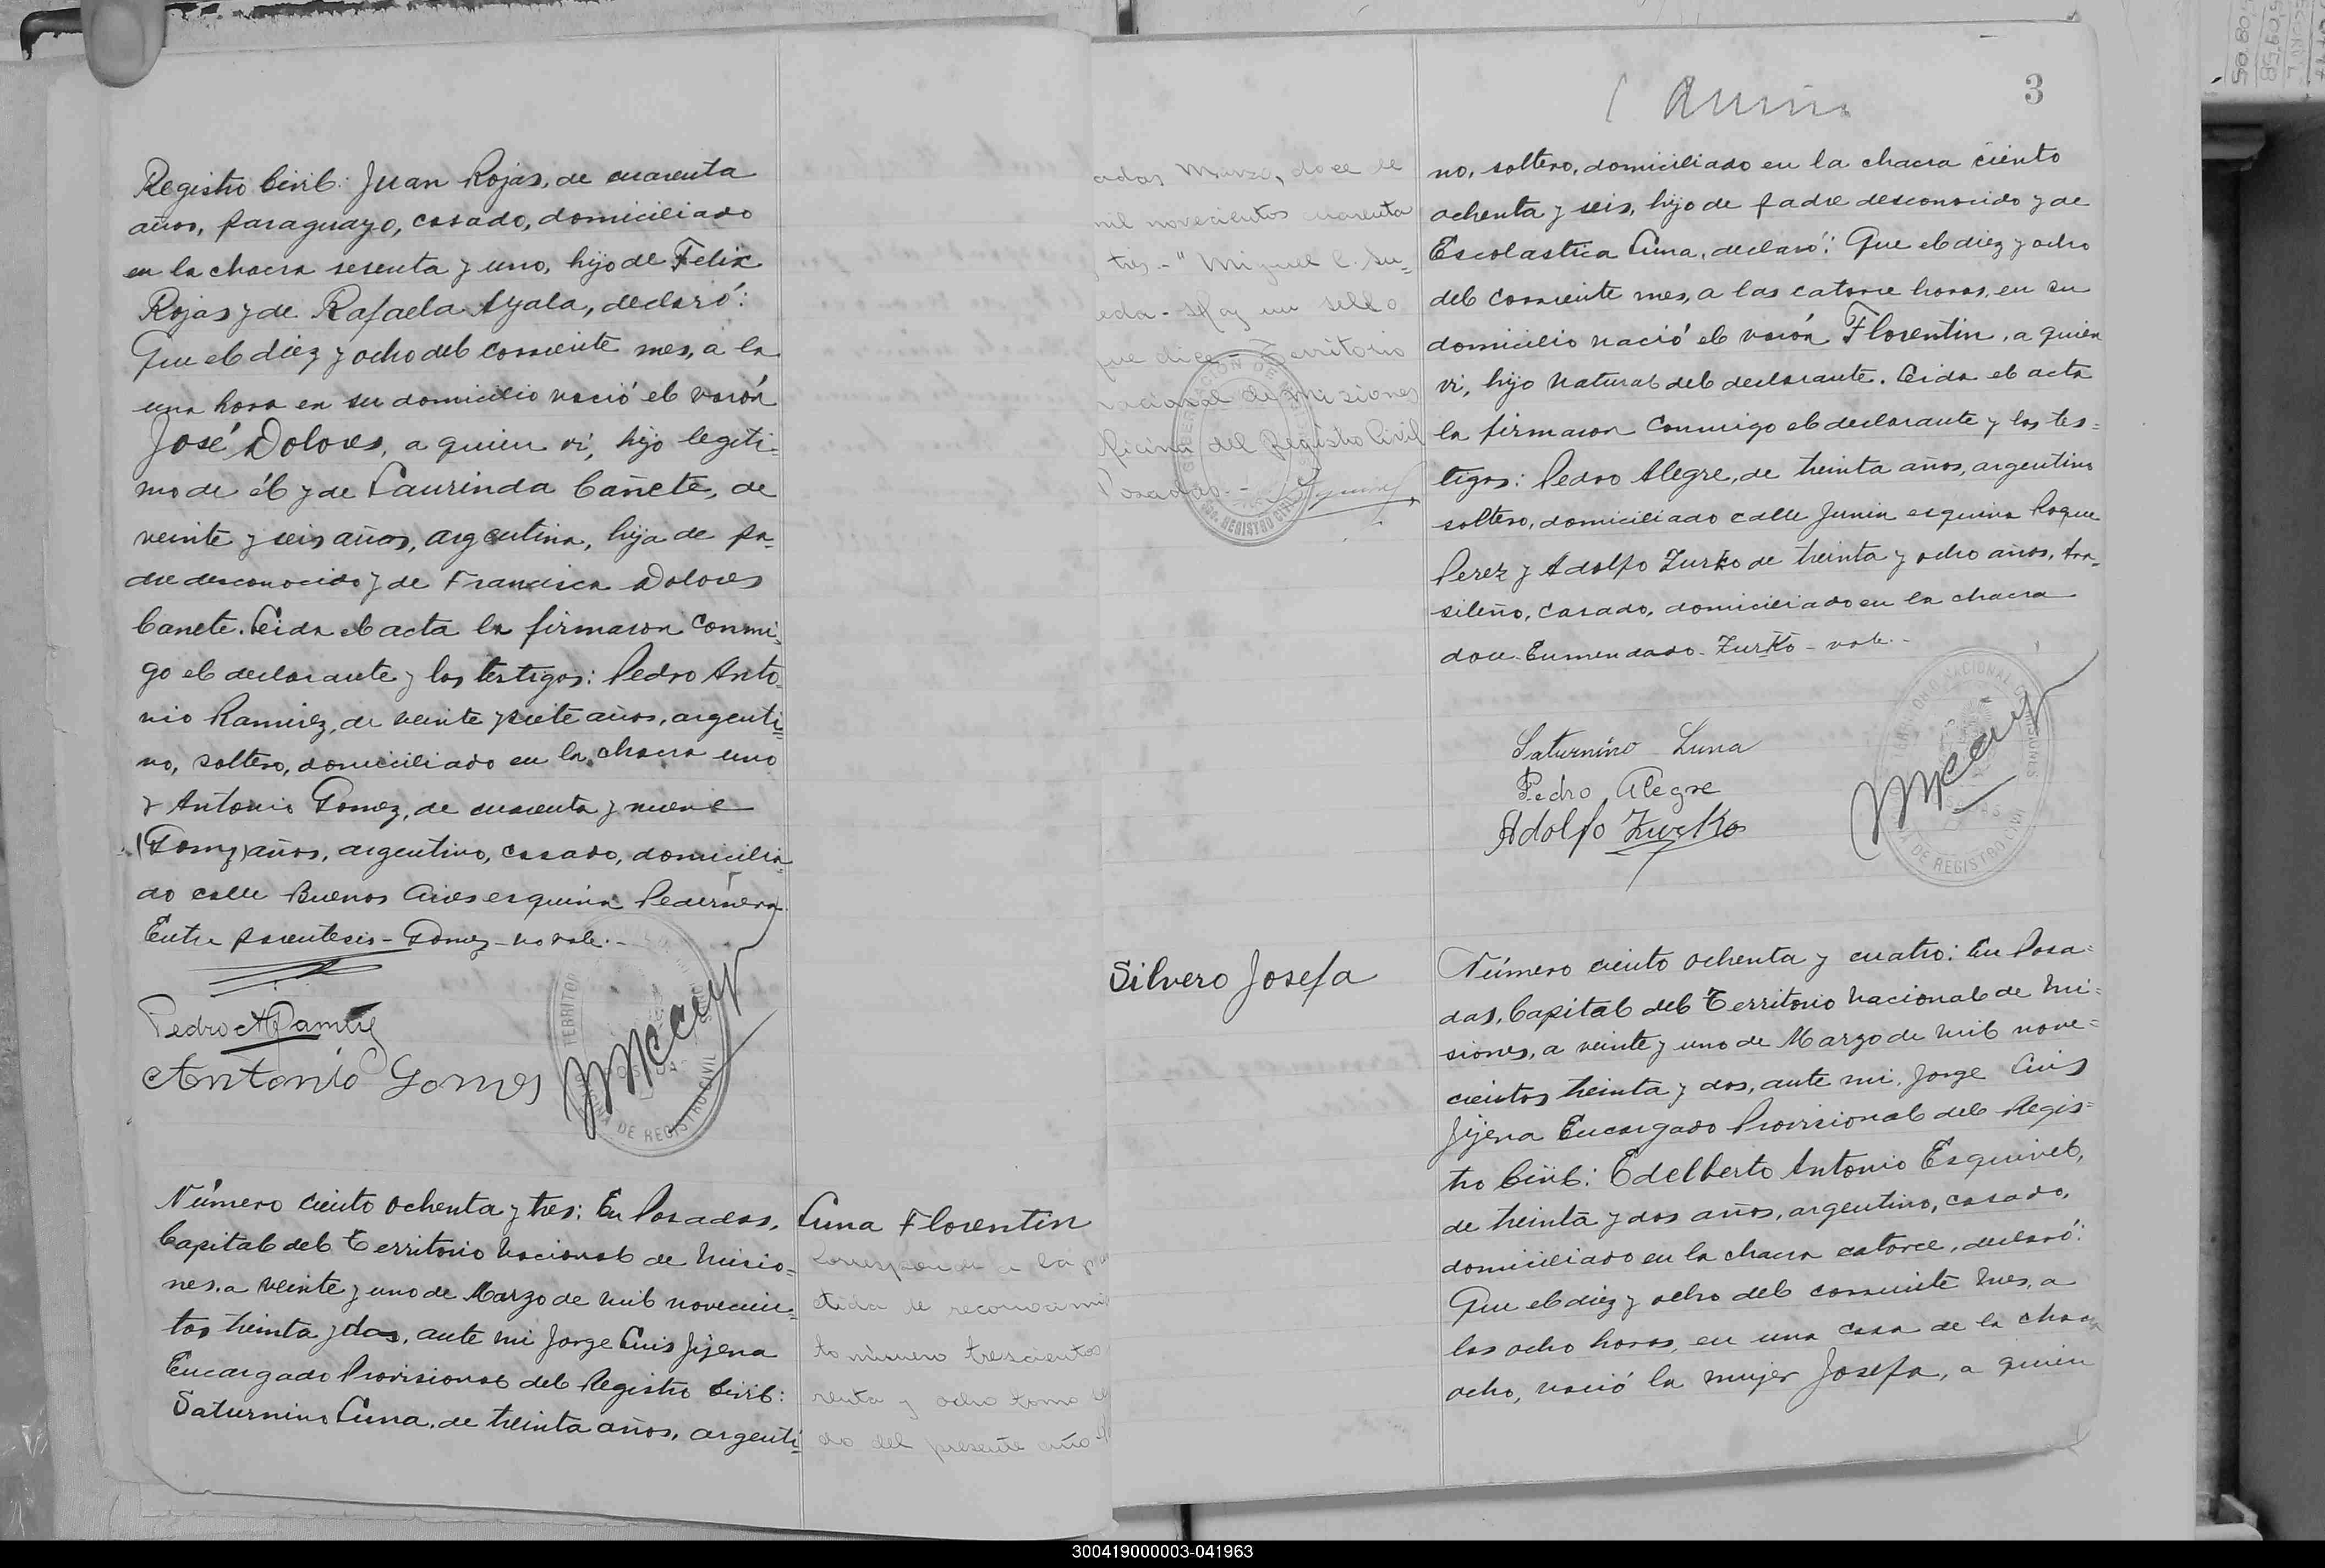 Registro Civil: Juan Rojas, de cuarenta
años, paraguayo, casado, domiciliado
en la chacra sesenta y uno, hijo de Felix
Rojas y de Rafaela Ayala, declaró:
Que el diez y ocho del corriente mes, a la
una hora en su domicilio nació el varón
José Dolores, a quien vi, hijo legiti-
mo de él y de Laurinda Cañete, de
veinte y seis años, argentina, hija de pa-
dre desconocido y de Francisca Dolores
Cañete. Leida el acta la firmaron conmi-
go el declarante y los testigos: Pedro Anto-
nio Ramirez, de veinte y siete años, argenti-
no, soltero, domiciliado en la chacra uno
y Antonio Gomez, de cuarenta y nueve
(Gomez) años, argentino, casado, domicilia-
do calle Buenos Aires esquina Pedernera.
Entre parentesis - Gomez - no vale.-
Pedro A Ramirez
Antonio Gomes
Número ciento ochenta y tres: En Posadas,
Capital del Territorio Nacional de Misio-
nes, a veinte y uno de Marzo de mil novecien-
tos treinta y dos, ante mi Jorge Luis Jijena
Encargado Provisional del Registro Civil:
Saturnino Luna, de treinta años, argenti-
Luna Florentin
Corresponde a la
de reconocimi
to número trescientos
renta y ocho tomo
do del presente año
3
adas Marzo, doce de
mil novecientos cuarenta
y tres.-" Miguel C. Su-
eda - Hay un sello
que dice - Territorio
nacional de Misiones
ficina del Registro Civil
Posadas.-
no, soltero, domiciliado en la chacra ciento
ochenta y seis, hijo de padre desconocido y de
Escolastica Luna, declaró: Que el diez y ocho
del corriente mes, a las catorce horas, en su
domicilio nació el varón Florentin, a quien
vi, hijo natural del declarante. Leida el acta
la firmaron conmigo el declarante y los tes-
tigos: Pedro Alegre, de treinta años, argentino
soltero, domiciliado calle Junin esquina Roque
Perez y Adolfo Zurko de treinta y ocho años, bra-
sileño, casado, domiciliado en la chacra
doce. Enmendado - Zurko - vale.-
Saturnino Luna
Pedro Alegre
Adolfo Zurko
TERRITORIO NACIONAL DE MISIONES
DE REGISTRO CIVIL
Silvero Josefa
Número ciento ochenta y cuatro: En Posa-
das, Capital del Territorio Nacional de Mi-
siones, a veinte y uno de Marzo de mil nove-
cientos treinta y dos, ante mi, Jorge Luis
Jijena Encargado Provisional del Regis-
tro Civil: Edelberto Antonio Esquivel,
de treinta y dos años, argentino, casado,
domiciliado en la chacra catorce, declaró:
Que el diez y ocho del corriente mes, a
las ocho horas, en una casa de la chacra
ocho, nació la mujer Josefa, a quien
300419000003-041963